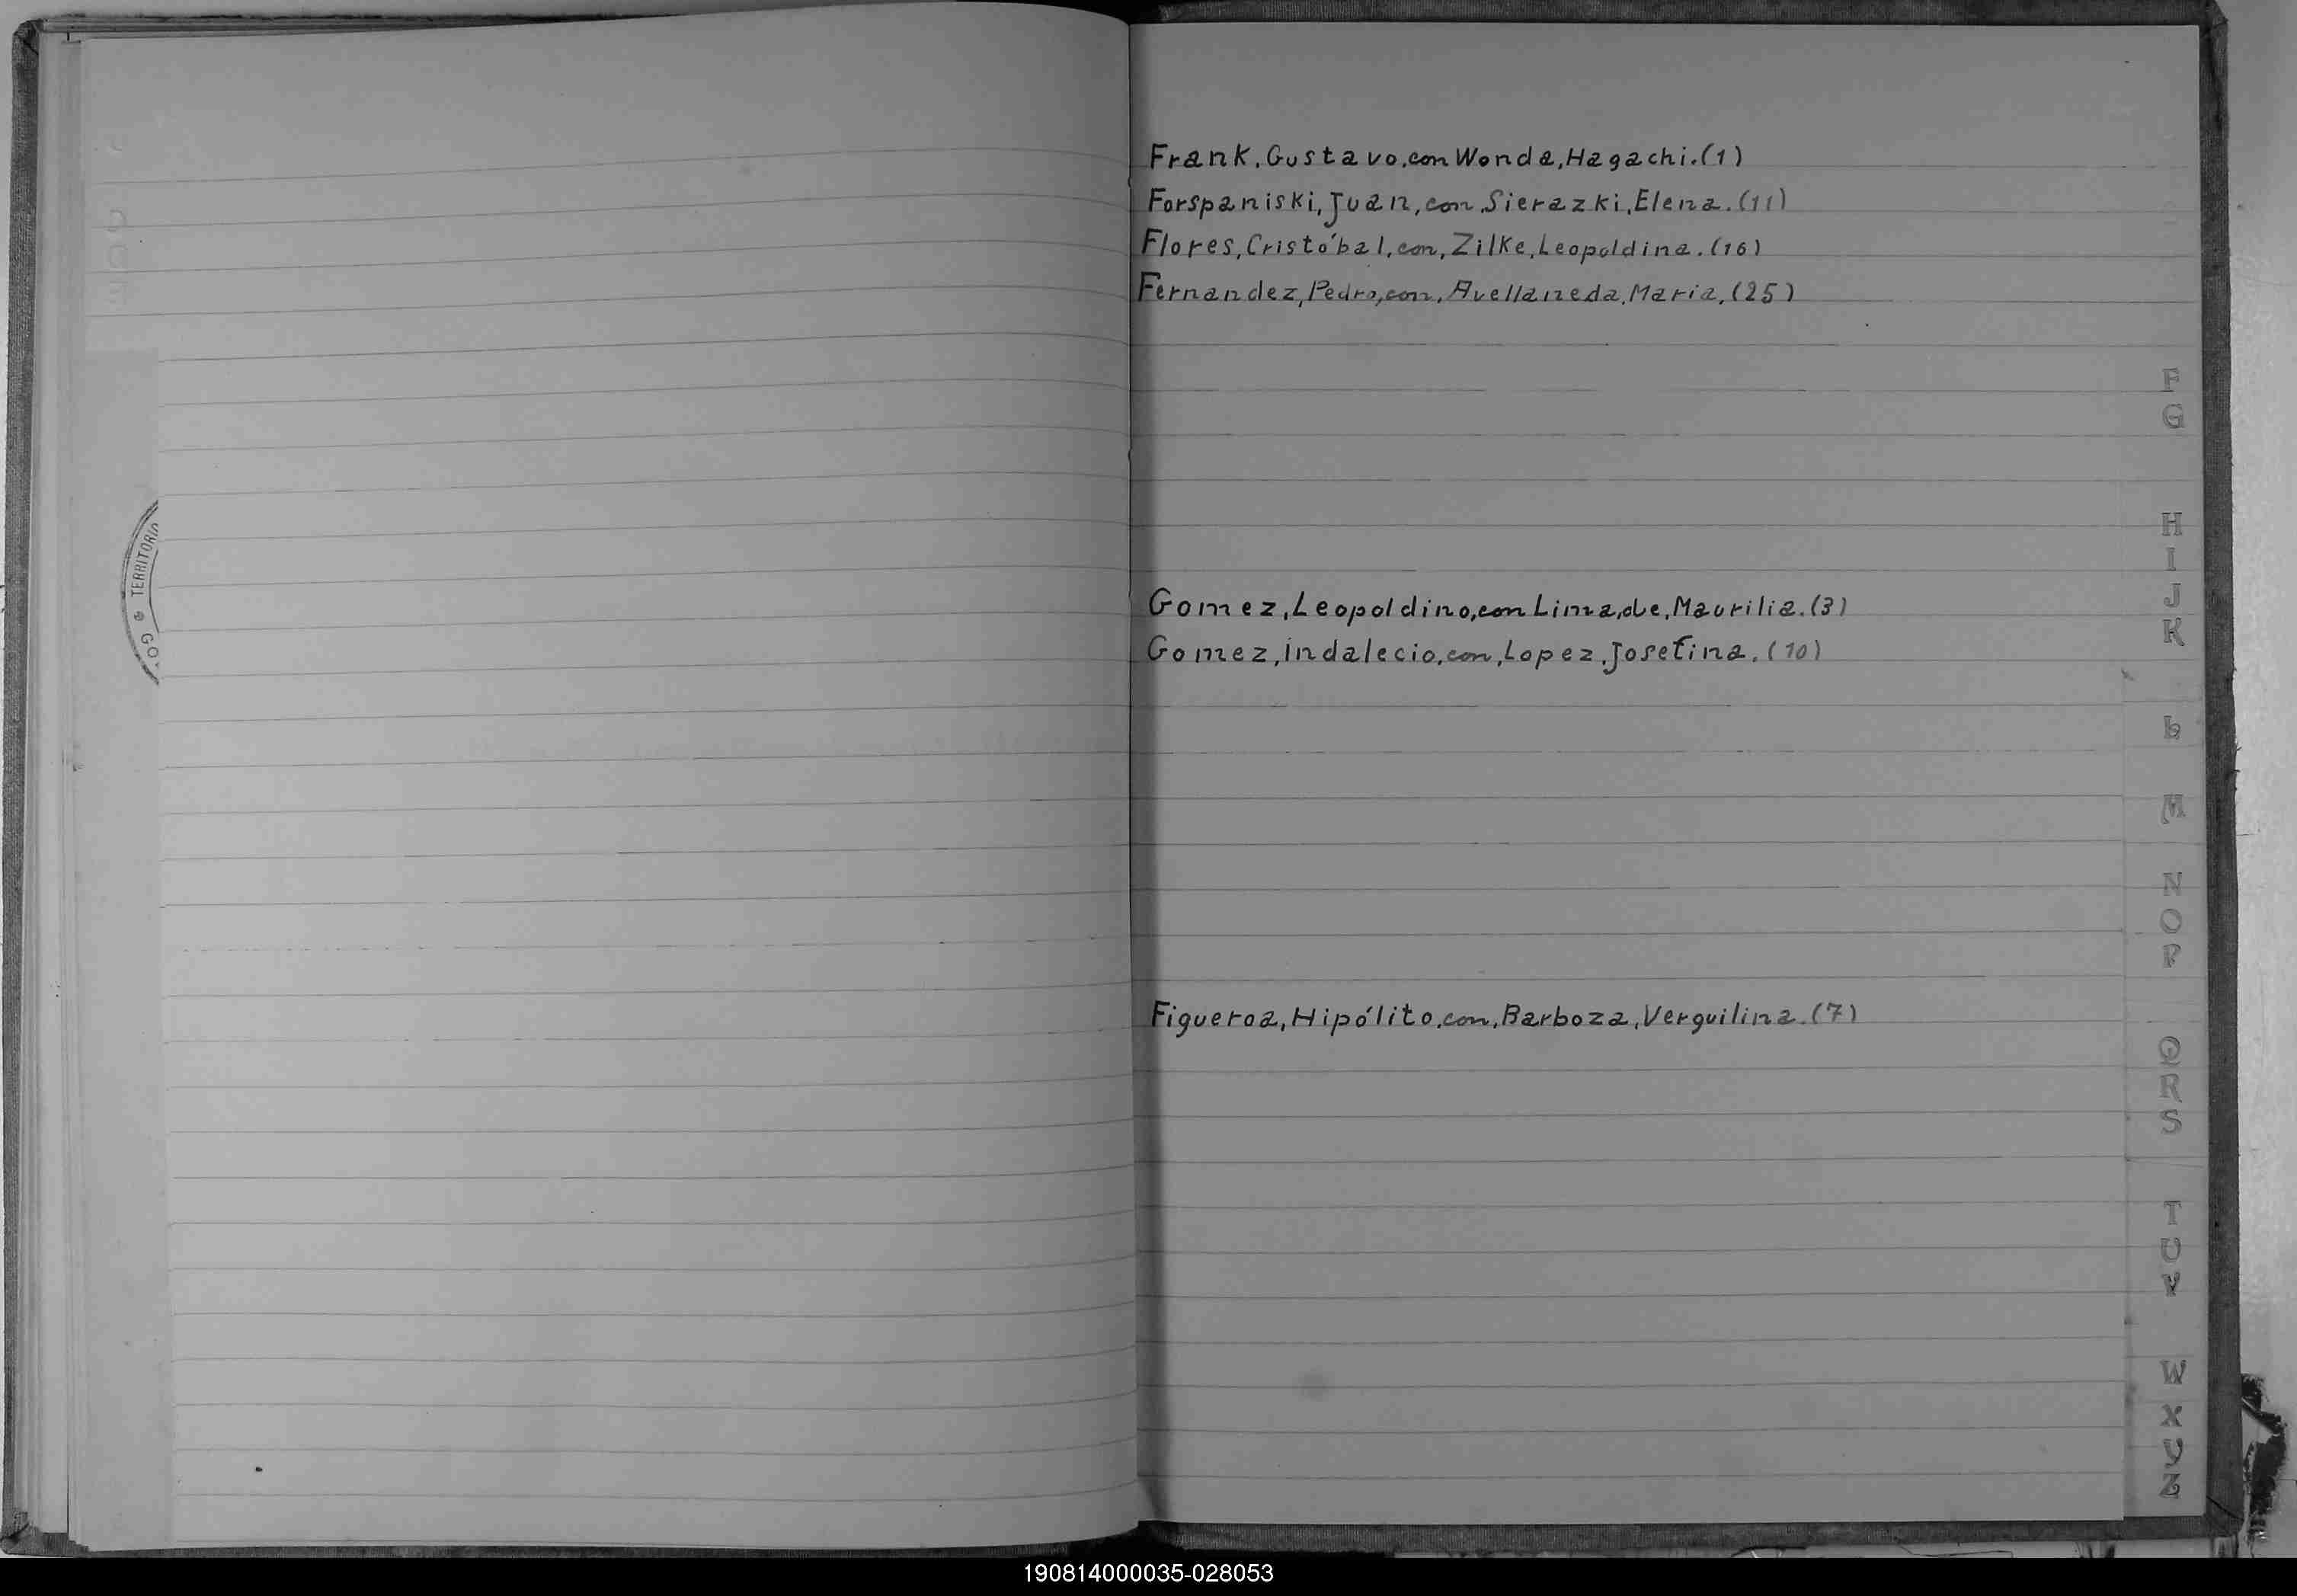 Frank, Gustavo, con Wonda, Hagachi. (1)
Forspaniski, Juan, con, Sierazki, Elena. (11)
Flores, Cristóbal, con, Zilke, Leopoldina. (16)
Fernandez, Pedro, con, Avellaneda, Maria, (25)
Gomez, Leopoldino, con Lima, de, Maurilia. (3)
Gomez, Indalecio, con, Lopez, Josefina. (10)
Figueroa, Hipólito, con, Barboza, Verguilina. (7)
TERRITORIO
GO
F
G
H
I
J
K
L
M
N
O
P
Q
R
S
T
U
V
W
X
Y
Z
190814000035-028053